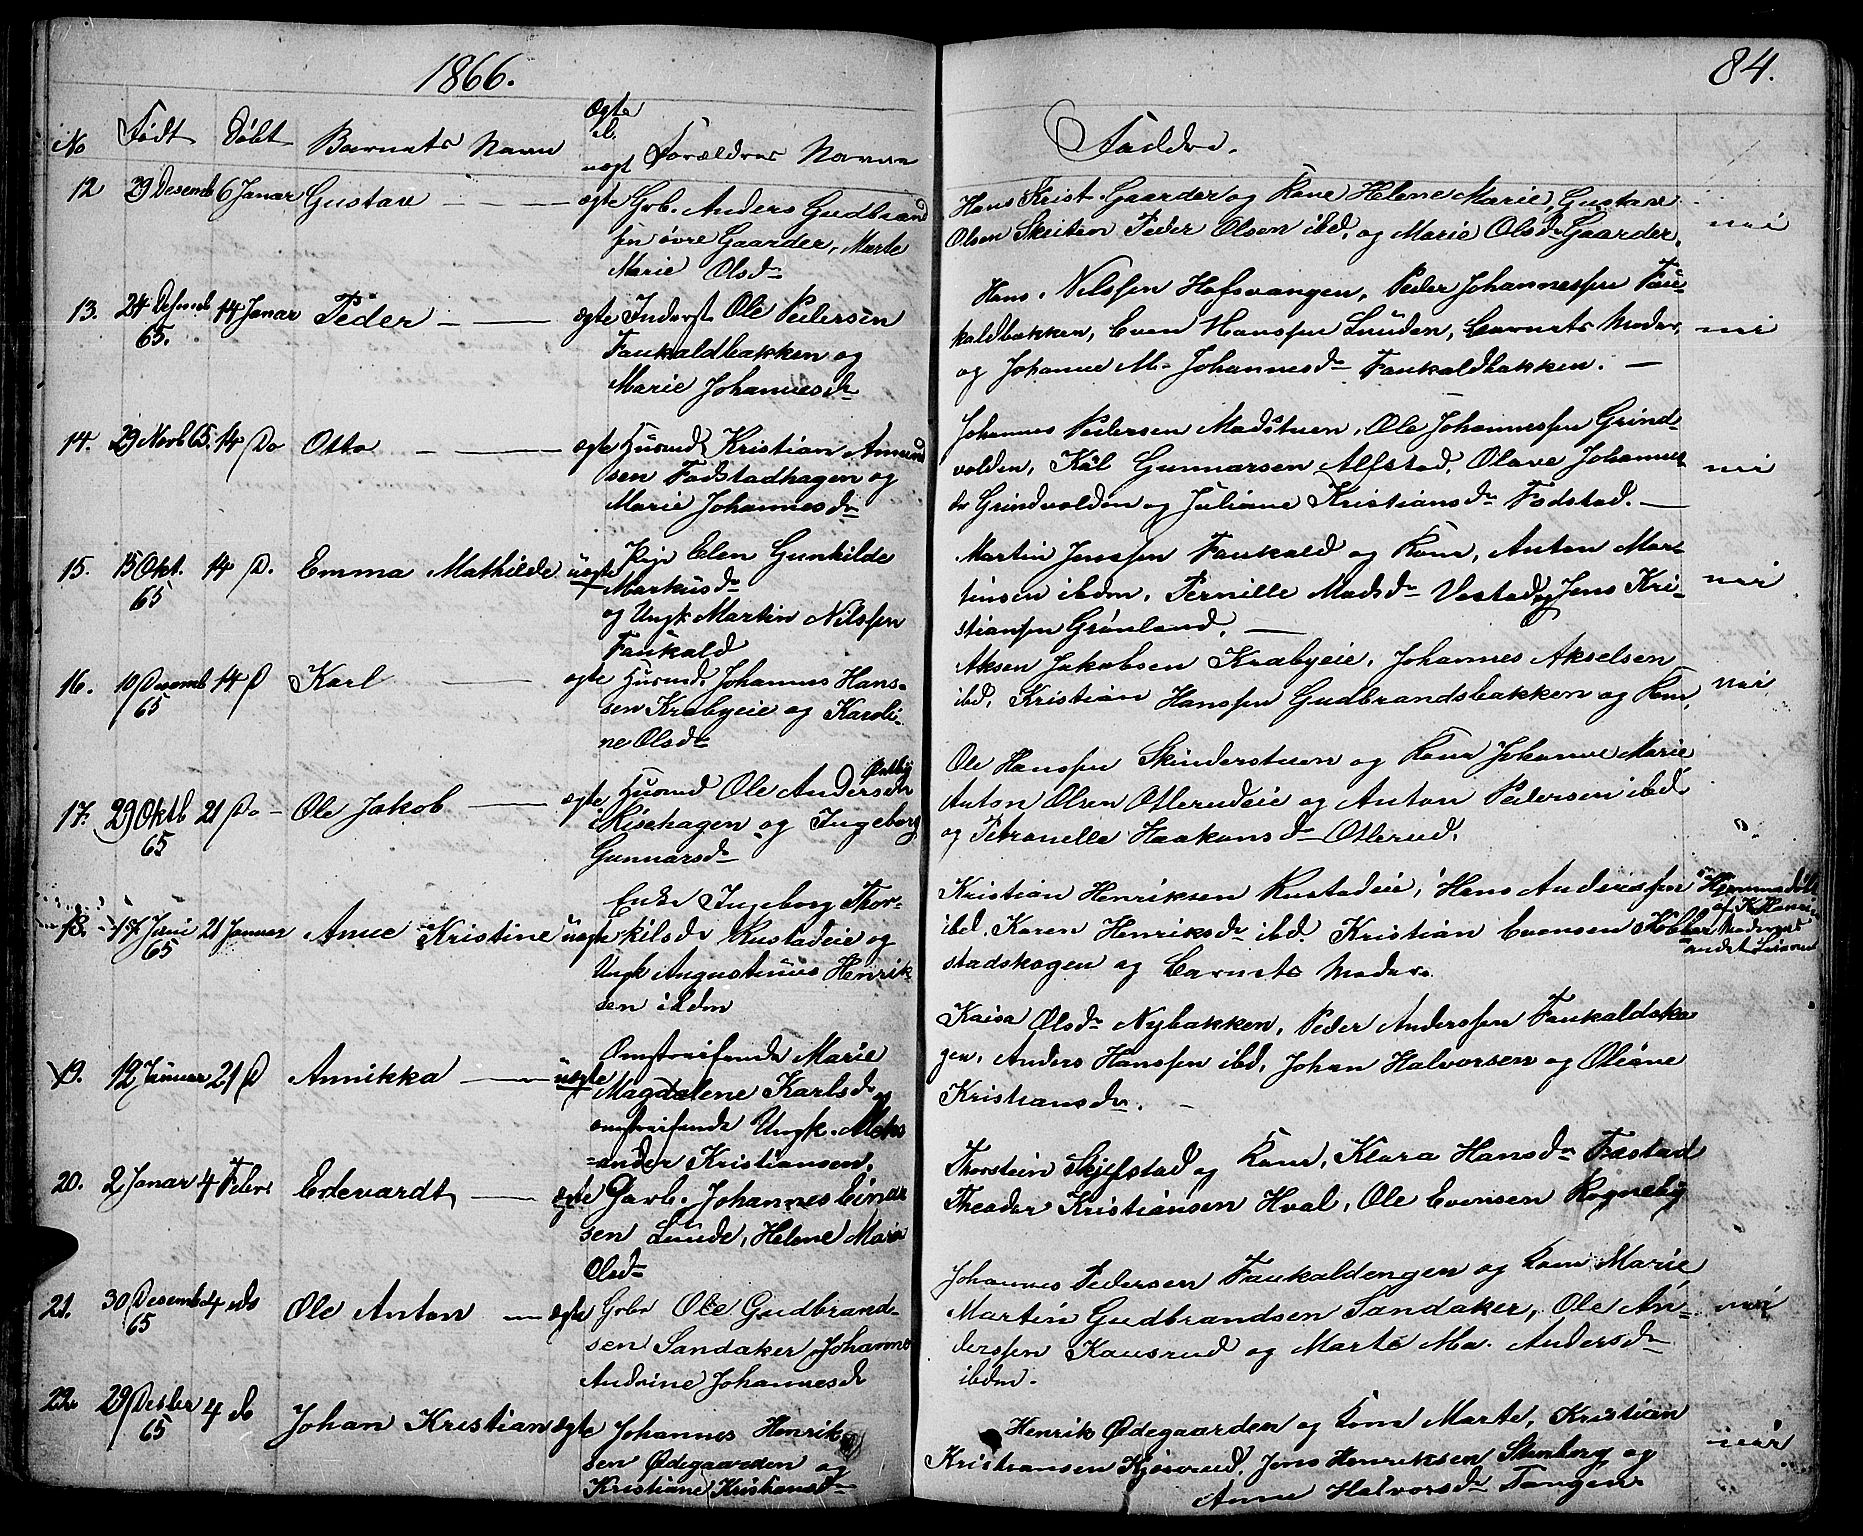 1866.
84.
No Født Døbt Barnets Navn Ægte el. uægt Forældres Navne
Faddre.
12 29 Desemb 6 Janar Gustav ægte Grb. Anders Gudbrand
sen øvre Gaarder, Marte
Marie Olsdr
Hans Krist. Gaarder og Kone Helene Marie, Gustav
Olsen Skeiten Peder Olsen ibd, og Marie Olsdr Gaarder.
13. 24 Desemb 65. 14 Janar Peder ægte Inderst Ole Pedersen
Faukaldbakken og
Marie Johannesdr
Hans Nilssen Hofsvangen, Peder Johannessen Fau-
kaldbakken, Even Hanssen Lunden, Barnets Moder,
og Johanne M. Johannesdr Faukaldbakken.
14. 29 Novb 65. 14 Do Otto ægte Husmd Kristian Amund
sen Fodstadhagen og
Marie Johannesdr
Johannes Pedersen Madstuen, Ole Johannessen Grind-
volden, Kal Gunnarsen Alfstad, Olave Johannes
dr Grindvolden og Juliane Kristiansdr Fodstad.
15. 15 Okt. 65 14 D. Emma Mathilde uægte Pige Elen Gunhilde
Markusdr
og Ungk Martin Nilssen
Faukald
Martin Jenssen Faukald og Kone, Anton Mar-
tinsen ibdm, Pernille Madsdr Vestad og Jens Kri-
stiansen Grønland.
16. 10 Desemb 65 14 D Karl ægte Husmd. Johannes Hans-
sen Krabyeie og Karoli-
ne Olsdr
Aksen Jakobsen Krabyeie, Johannes Akselsen
ibd, Kristian Hanssen Gudbrandsbakken og Kone,
17. 29 Oktb 65 21 Do Ole Jakob ægte Husmd Ole Andersen
Risehagen og Ingeborg
Gunnarsdr
Ole Hanssen Skinderstuen og Kone Johanne Marie
Anton Olsen Otterudeie og Anton Pedersen ibd
og Petronelle Haakonsdr Otterud.
18. 17 Juni 65 21 Januar Anne Kristine uægte Enke Ingeborg Thor-
kilsdr Rustadeie og
Ungk Augustinus Henrik
sen ibdm
Kristian Henriksen Rustadeie, Hans Anderssen
ibd, Karen Henriksdr ibd. Kristian Evensen
stadskogen og Barnets Moder.
Hjemmedøbt
af K. Henri-
19. 12 Januar 21 D Annikka uægte Omstreifende Marie
Magdalene Karlsdr og
omstreifende Ungk. Aleks
ander Kristiansen.
Kaisa Olsdr Nybakken, Peder Anderssen Faukaldsko
gen, Anders Hanssen ibd, Johan Halvorsen og Oliane
Kristiansdr.
20. 2 Janar 4 Febr Edevardt ægte Garb. Johannes Einar
sen Lunde, Helene Marie
Olsdr
Thorstein Skjefstad og Kone, Klara Hansdr Fostad
Theodor Kristiansen Hval, Ole Evensen Rogneby
21. 30 Desemb 65 4 do Ole Anton ægte Grbr Ole Gudbrand-
sen Sandaker, Johanne
Andrine Johannesdr
Johannes Pedersen Faukaldengen og Kone Marie
Martin Gudbrandsen Sandaker, Ole An-
derssen Kausrud og Marte Ma. Andersdr
ibdm.
22. 29 Desber 65 4 do Johan Kristian ægte Johannes Henrik
sen Ødegaarden og
Kristiane Kristiansdr
Henrik Ødegaarden og Kone Marte, Kristian
Kristiansen Kjøsrud, Jens Henriksen Stenberg og
Anne Halvorsdr Tangen.